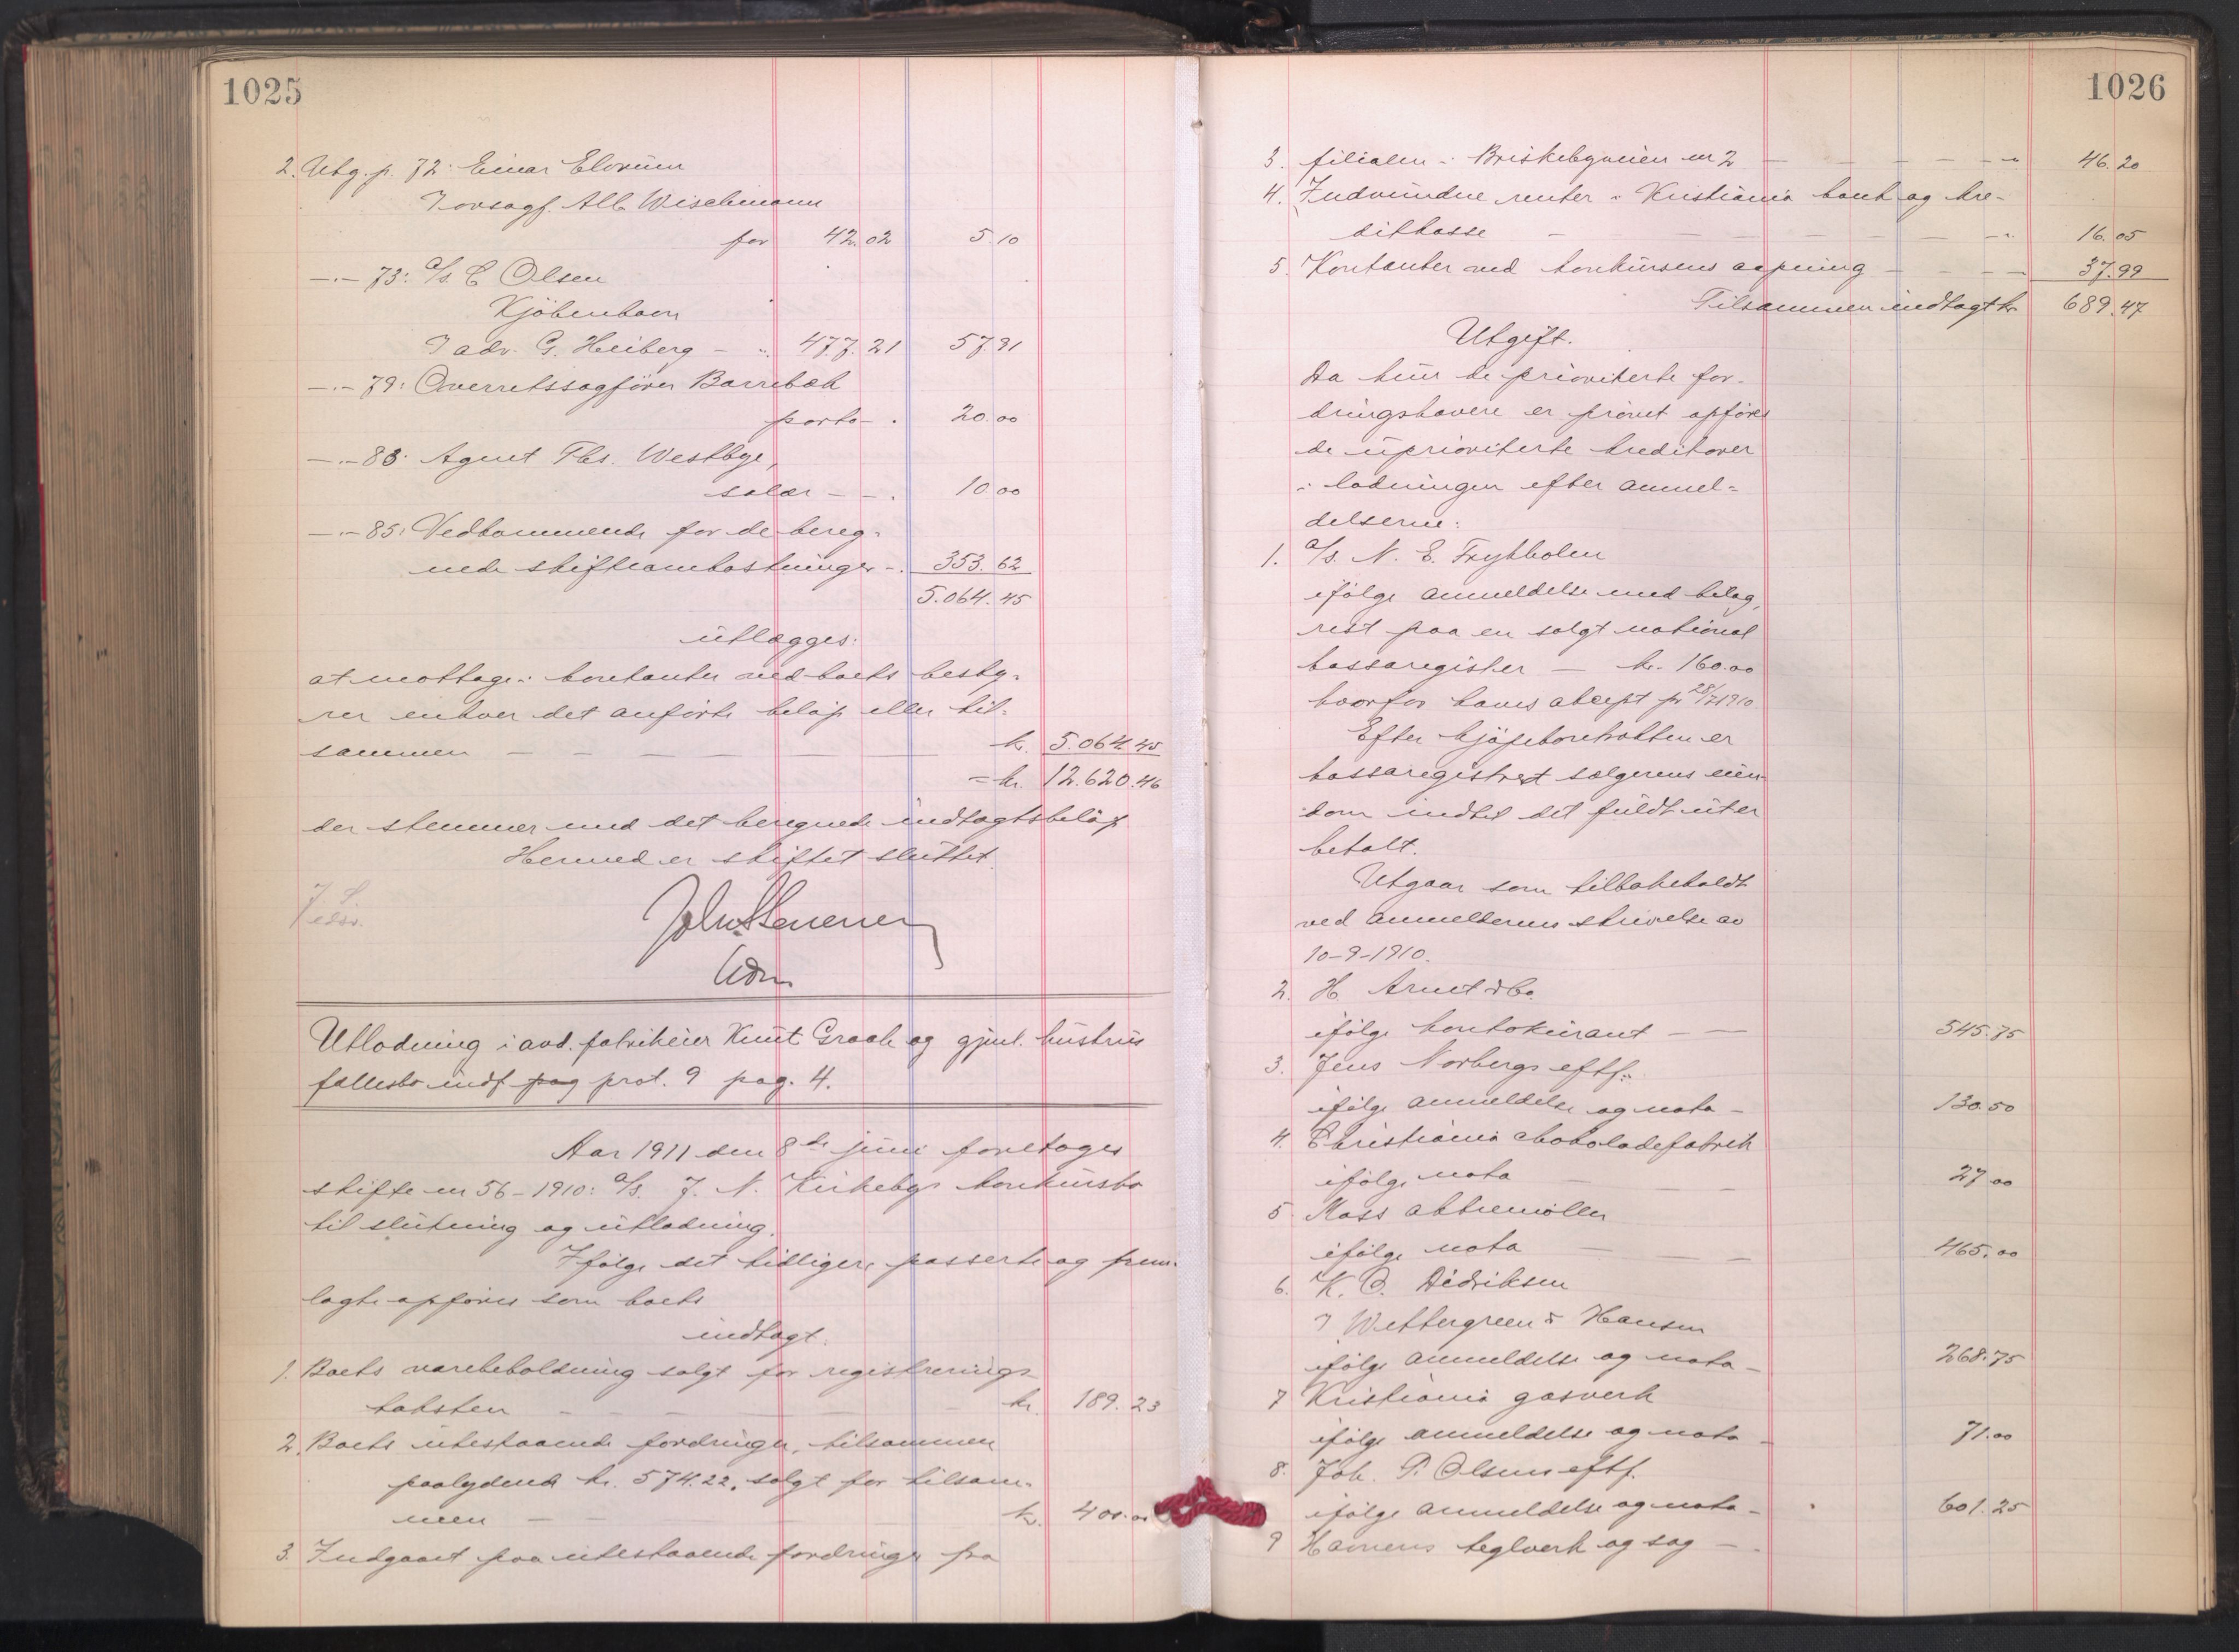 1025
2. Utg. p. 72: Einar Elorum
I ovsagf. Alb. Wischmann
for 42.02 5.10
-"- 73: A/s. C Olsen
Kjöbenhavn
I adv. G. Heiberg - " 477.21 57.91
-"- 79: Overretssagförer Barrebæk
porto - " 20.00
-"- 83: Agent Ths. Westbye,
salær - - " 10.00
-"- 85: Vedkommende for de bereg-
nede skifteomkostninger - " 353.62
5.064.45
utlægges:
at mottage i kontanter ved boets besty-
rer enhver det anførte beløp eller til-
sammen - - - - kr. 5.064.45
= kr. 12.620.46
der stemmer med det beregnede indtægtsbeløp
Hermed er skiftet sluttet.
Utlodning i avd. fabrikeier Knut Graah og gjenl. hustrus
fællesbo indf. pag prot. 9 pag. 4.
Aar 1911 den 8de juni foretoges
skifte nr 56-1910: A/s. J. N. Kirkebys konkursbo
til slutning og utlodning.
Ifølge det tidligere passerte og frem-
lagte opføres som boets
indtægt.
1. Boets varebeholdning solgt for registrerings-
taksten - - - kr. 189.23
2. Boets utestaaende fordringer, tilsammen
paalydende kr. 574.22, solgt for tilsam-
men - - kr. 400.00
3. Indgaaet paa utestaaende fordringer fra
1026
3. filialen i Briskebyveien nr 2 - - - - " 46.20
4. Indvundne renter i Kristiania bank og kre-
ditkasse - - - - - " 16.05
5. Kontanter ved konkursens aapning - - - 37.99
Tilsammen indtægt kr. 689.47
Utgift.
Da kun de prioriterte for-
dringshavere er prøvet opføres
de uprioriterte kreditorer
i lodningen efter anmel-
delserne:
1. A/s. N. E. Frykholm
ifølge anmeldelse med bilag,
rest paa en solgt national
kassaregister - kr. 160.00
hvorfor haves aksept pr 28/7 1910.
Efter kjøpekontrakten er
kassaregistret sælgerens eien-
dom indtil det fuldt ut er
betalt.
Utgaar som tilbakekaldt
ved anmelderens skrivelse av
10-9-1910.
2. H. Arnet & Co.
ifølge kontokurant - - 545.75
3. Jens Norbergs eftf.
ifølge anmeldelse og nota - 130.50
4. Christiania chokoladefabrik
ifølge nota - - - 27.00
5 Moss aktiemøller
ifølge nota - - - 465.00
6. K. O. Didriksen
I Wettergreen & Hansen
ifølge anmeldelse og nota - 268.75
7 Kristiania gasverk
ifølge anmeldelse og nota - 71.00
8. Joh. P. Olsens eftf.
ifølge anmeldelse og nota - " 601.25
9 Hamrens teglverk og sag - -